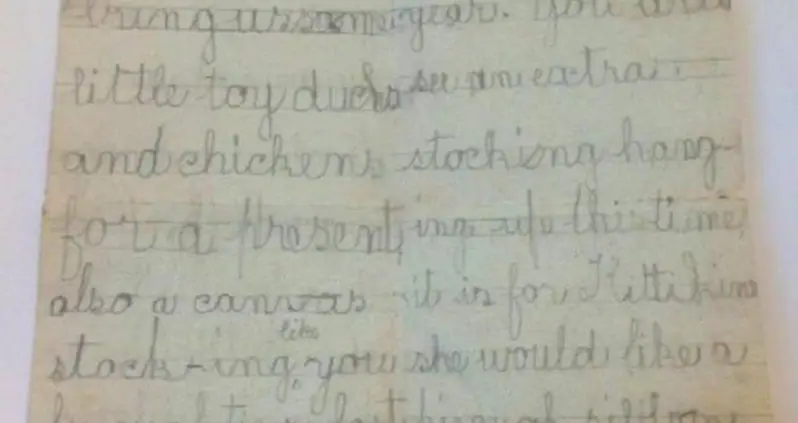 bring us some
little toy ducks
and chickens
for a present,
also a canvas
stock-ing, like you
last
year. You will
see an extra
stocking hang-
ing up this time,
it is for Kittikins
she would like a